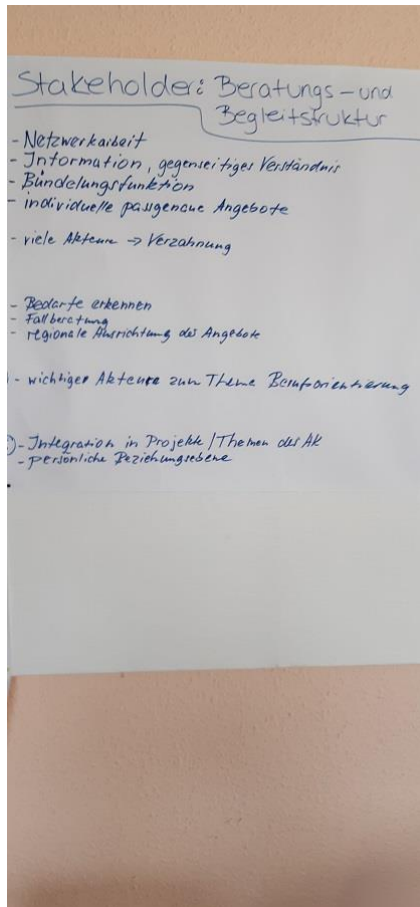 Stakeholder: Beratungs- und
Begleitstruktur
- Netzwerkarbeit
- Information, gegenseitiges Verständnis
- Bündelungsfunktion
- individuelle passgenaue Angebote
- viele Akteure → Verzahnung
- Bedarfe erkennen
- Fallberatung
- regionale Ausrichtung der Angebote
- wichtiger Akteure zum Thema Berufsorientierung
- Integration in Projekte / Themen des AK
- persönliche Beziehungsebene